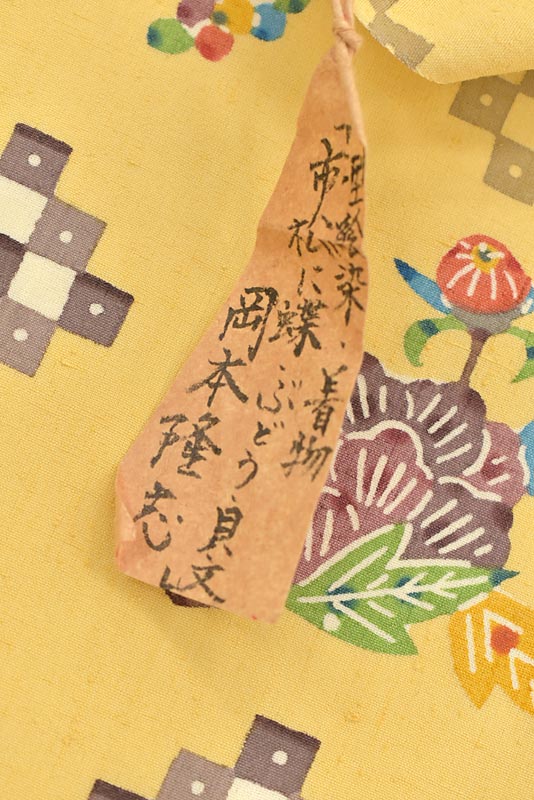 「型絵染・着物
市松に蝶・ぶどう
岡本隆志